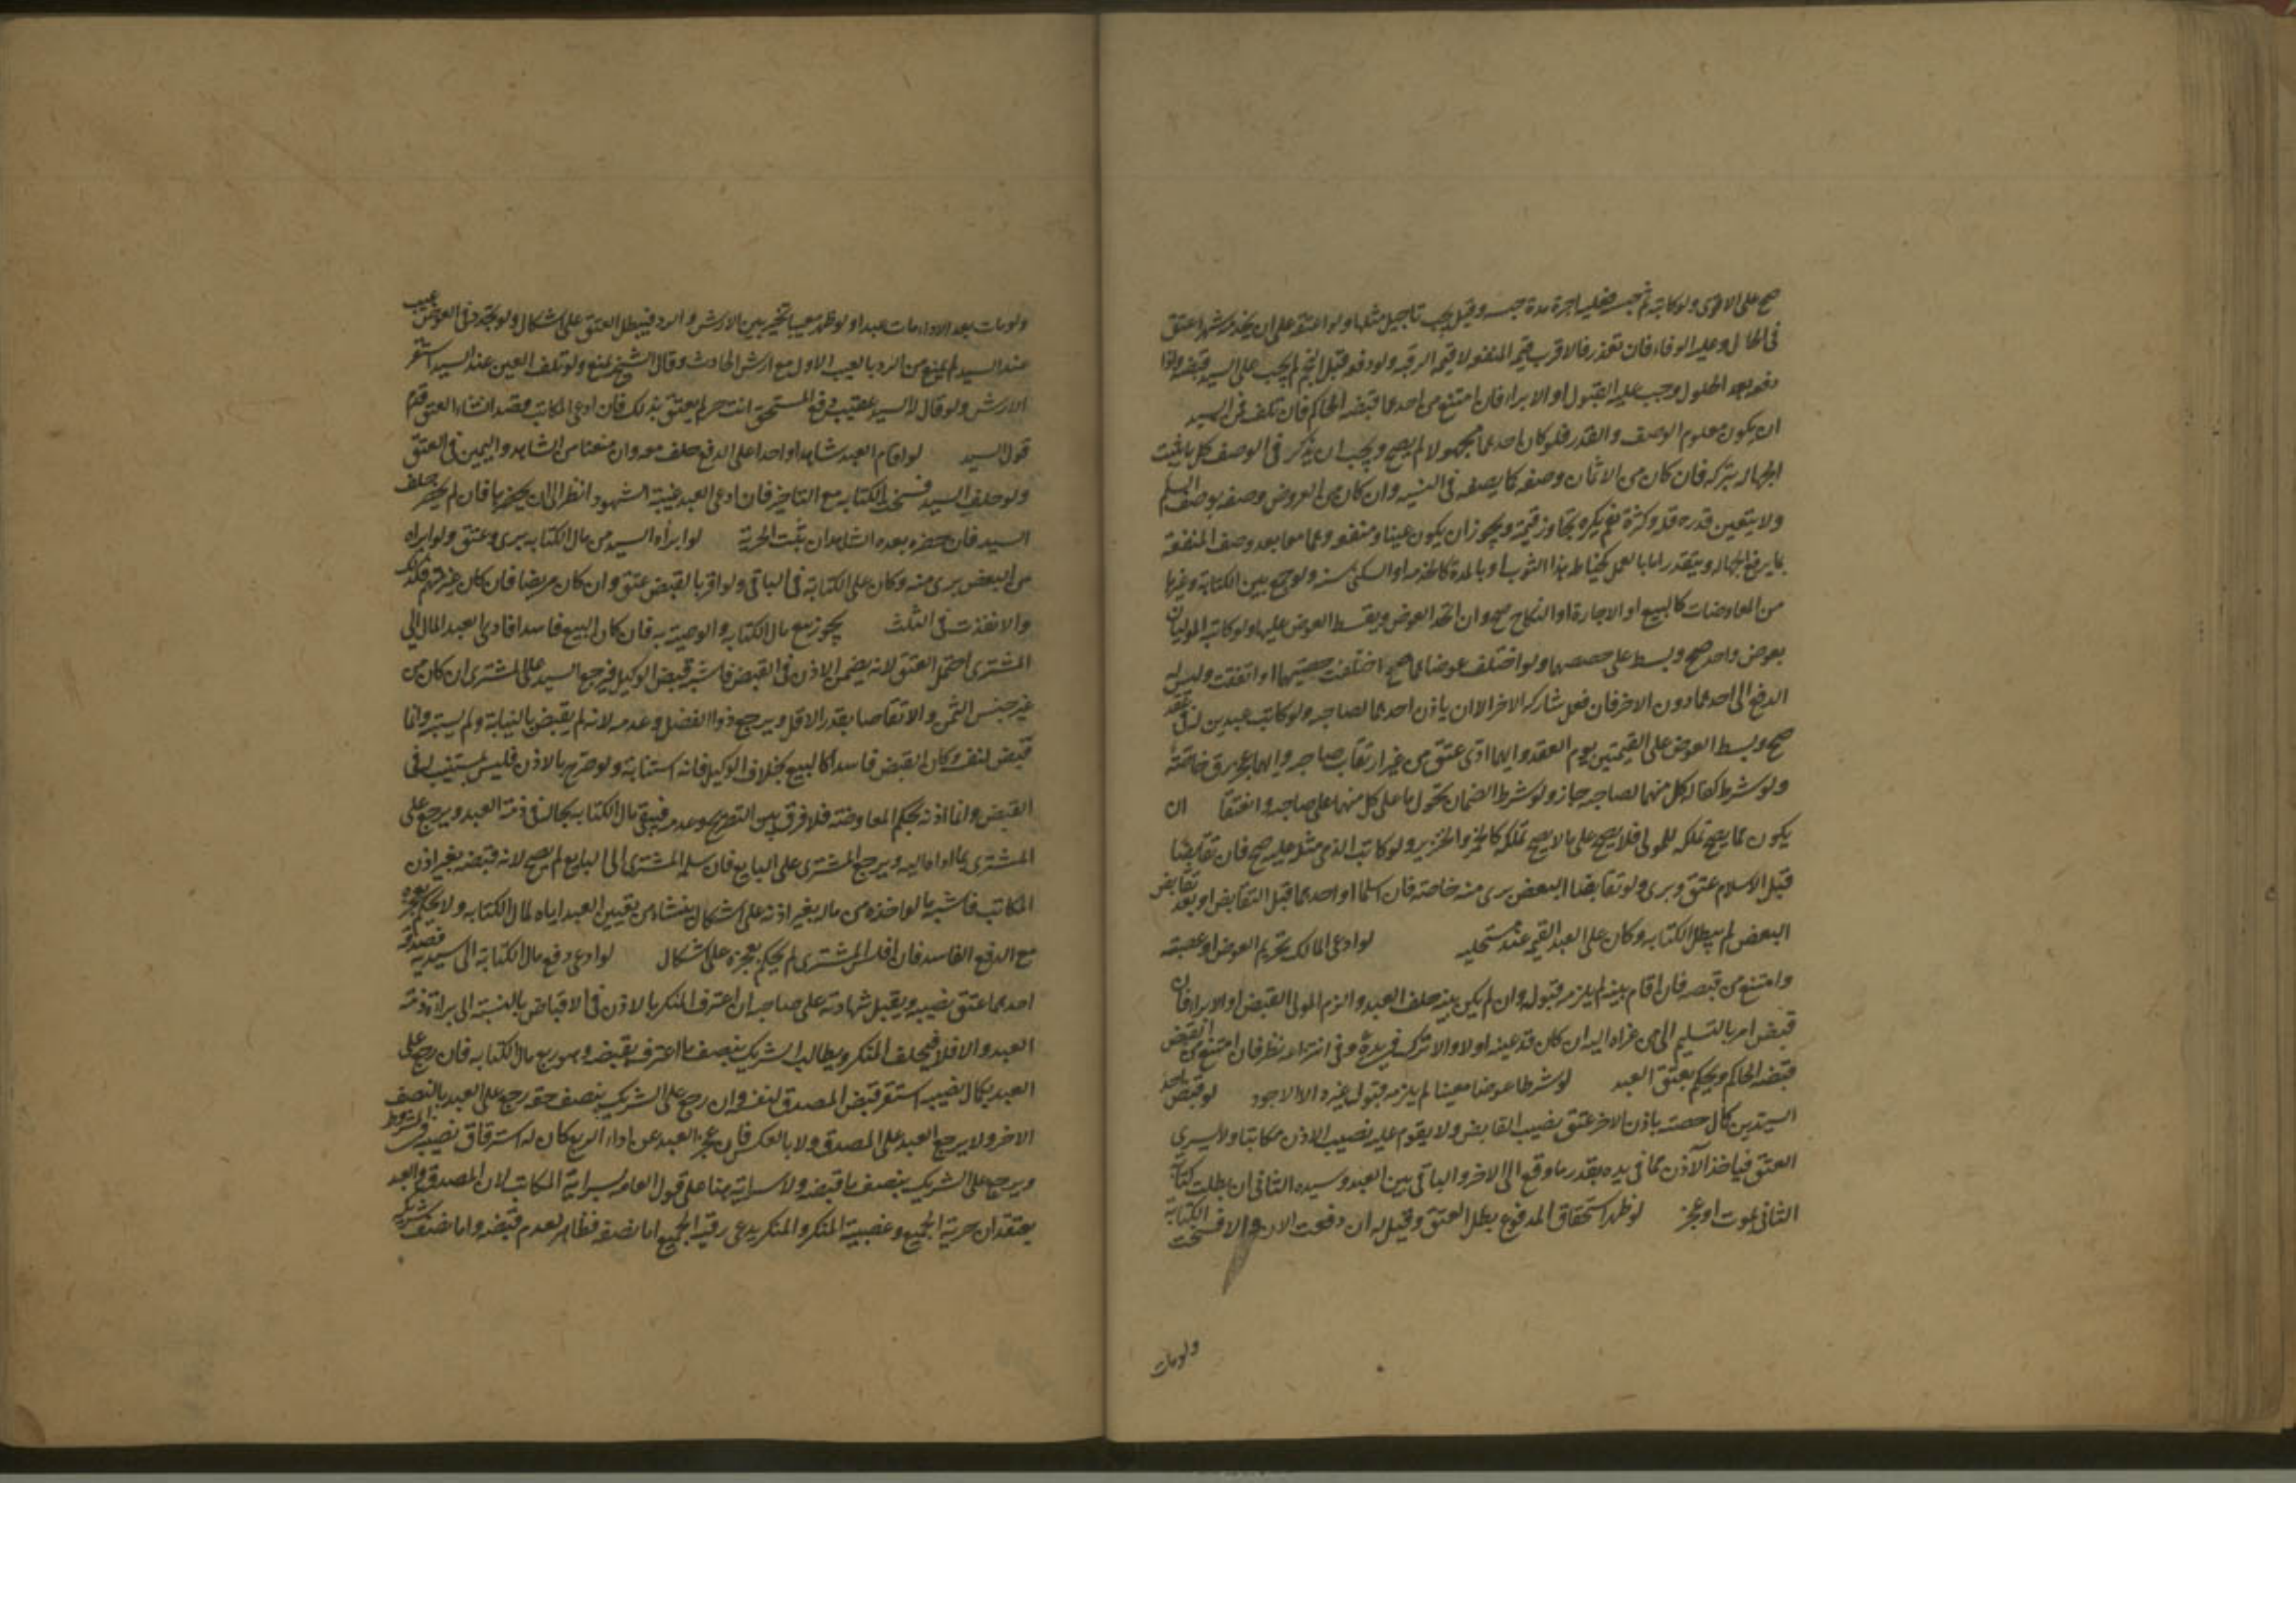 صح على الاقوى ولو كاتبه ثم حبسه فعليه اجرة مدة حبسه وقيل يجب تاجيل مثلها ولو اعتقه على ان يخدمه شهرا عتق
فى الحال وعليه الوفاء فان تعذر فالاقرب قيمة المنفعة لا قيمة الرقبة ولو دفع قبل النجم لم يجب على السيد قبضه ولو
دفع بعد الحلول وجب عليه القبول او الابراء فان امتنع من احدهما قبضه الحاكم فان تلف فمن السيد
ان يكون معلوم الوصف والقدر فلو كان احدهما مجهولا لم يصح ويجب ان يذكر فى الوصف كل ما يثبت
الجهالة بتركه فان كان من الاثمان وصفه كما يصفه فى النسية وان كان من العروض وصفه بوصف السلم
ولا يتعين قدره قلة وكثرة نعم يكره تجاوز قيمته ويجوز ان يكون عينا ومنفعة وهما معا بعد وصف المنفعة
بما يرفع الجهالة ويتقدر اما بالعمل كخياطة هذا الثوب او بالمدة كالخدمة او السكنى سنة ولو جمع بين الكتابة وغيرها
من المعاوضات كالبيع او الاجارة او النكاح صح وان اتحد العوض ويقسط العوض عليها ولو كاتبه الموليان
بعوض واحد صح وبسط على حصصهما ولو اختلف عوضاهما صح اختلفت حصتهما او اتفقت وليس له
الدفع الى احدهما دون الاخر فان فعل شاركه الاخر الا ان ياذن احدهما لصاحبه ولو كاتب عبدين له فى عقد
صح وبسط العوض على القيمتين يوم العقد وايهما ادى عتق من غير ارتقاب صاحبه وايهما عجز رق خاصة
ولو شرط كفالة كل منهما لصاحبه جاز ولو شرط الضمان تحول ما على كل منهما على صاحبه وانعتقا ان
يكون مما يصح تملكه للمولى فلا يصح على ما لا يصح تملكه كالخمر والخنزير ولو كاتب الذمى مثله عليه صح فان تقابضا
قبل الاسلام عتق وبرى ولو تقابضا البعض برى منه خاصة فان اسلما او احدهما قبل التقابض او بعد تقابض
البعض لم يبطل الكتابة وكان على العبد القيمة عند مستحليه لو ادعى المالك تحريم العوض او غصبيته
وامتنع من قبضه فان اقام بينة لم يلزمه قبوله وان لم يكن بينة حلف العبد والزم المولى القبض او الابراء فان
قبض امر بالتسليم الى من عزاه اليه ان كان قد عينه اولا والا ترك فى يده وفى انتزاعه نظر فان امتنع من القبض
قبضه الحاكم ويحكم بعتق العبد لو شرطا عوضا معينا لم يلزمه قبول غيره الا الاجود لو قبض احد
السيدين كمال حصته باذن الاخر عتق نصيب القابض ولا يقوم عليه نصيب الاذن مكاتبا ولا يسرى
العتق فياخذ الآذن مما فى يده بقدر ما دفع الى الاخر والباقى بين العبد وسيده الثانى ان بطلت كتابة
الثانى بموت او عجز لو ظهر استحقاق المدفوع بطل العتق وقيل له ان دفعت الان والا فسخت الكتابة
ولو مات
ولو مات بعد الاداء مات عبدا ولو ظهر معيبا تخير بين الارش والرد فيبطل العتق على اشكال ولو تجدد فى العوض عيب
عند السيد لم يمنع من الرد بالعيب الاول مع ارش الحادث وقال الشيخ يمنع ولو تلف العين عند السيد استقر
الارش ولو قال السيد عقيب دفع المستحق انت حر لم يعتق بذلك فان ادعى المكاتب قصد انشاء العتق قدم
قول السيد لو اقام العبد شاهدا واحدا على الدفع حلف معه وان منعنا من الشاهد واليمين فى العتق
ولو حلف السيد فسخت الكتابة مع التاخير فان ادعى العبد غيبة الشهود انظر الى ان يحضرها فان لم يحضر حلف
السيد فان حضر بعده الشاهدان ثبت الحرية لو ابراه السيد من مال الكتابة برى وعتق ولو ابراه
من البعض برى منه وكان على الكتابة فى الباقى ولو اقر بالقبض عتق وان كان مريضا فان كان غير متهم فكذلك
والا نفذت فى الثلث يجوز بيع مال الكتابة والوصية به فان كان البيع فاسدا فادى العبد المال الى
المشترى احتمل العتق لانه يضمن الاذن فى القبض فاشبه قبض الوكيل فيرجع السيد على المشترى ان كان من
غير جنس الثمن والا تقاصا بقدر الاقل ويرجع ذو الفضل وعدمه لانه لم يقبض بالنيابة ولم يستبه وانما
قبض لنفسه وكان القبض فاسدا كالبيع بخلاف الوكيل فانه استنابه ولو صرح بالاذن فليس مستنيبا له فى
القبض وانما اذنه بحكم المعاوضة فلا فرق بين التصريح وعدمه فيبقى مال الكتابة بحاله فى ذمة العبد ويرجع على
المشترى بما اداه اليه ويرجع المشترى على البايع فان سلمه المشترى الى البايع لم يصح لانه قبضه بغير اذن
المكاتب فاشبه ما لو اخذه من ماله بغير اذنه على اشكال ينشاء من تعيين العبد اياه لمال الكتابة ولا يحكم بعجزه
مع الدفع الفاسد فان افلس المشترى لم يحكم بعجزه على اشكال لو ادعى دفع مال الكتابة الى سيديه فصدقه
احدهما عتق نصيبه ويقبل شهادته على صاحبه ان اعترف المنكر بالاذن فى الاقباض بالنسبة الى براءة ذمة
العبد والا فلا فيحلف المنكر ويطالب الشريك بنصف ما اعترف بقبضه وهو ربع مال الكتابة فان رجع على
العبد بكمال نصيبه استقر قبض المصدق لنفسه وان رجع على الشريك بنصف حقه رجع على العبد بالنصف
الاخر ولا يرجع العبد على المصدق ولا بالعكس فان عجز العبد عن اداء الربع كان له استرقاق نصيبه فى المشروط
ويرجع على الشريك بنصف ما قبضه ولا سراية هنا على قول العامة بسراية المكاتب لان المصدق والعبد
يعتقدان حرية الجميع وغصبية المنكر والمنكر يدعى رقية الجميع اما نصفه فظاهر لعدم قبضه واما نصف شريكه